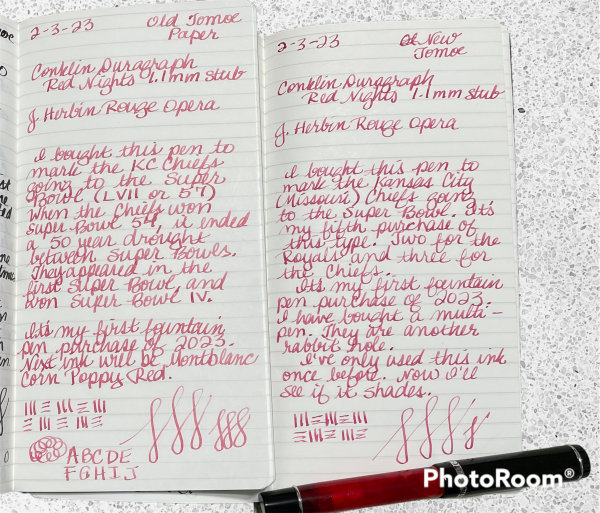 2-3-23
Old Tomoe
Paper
Conklin Duragraph
Red Nights 1.1mm stub
J. Herbin Rouge Opera
I bought this pen to
mark the KC Chiefs
going to the Super
Bowl (LVII or 57)
When the Chiefs won
Super Bowl 54, it ended
a 50 year drought
between Super Bowls.
They appeared in the
first Super Bowl, and
won Super Bowl IV.
It's my first fountain
pen purchase of 2023.
Next ink will be Montblanc
Corn Poppy Red.
ABCDE
FGHIJ
2-3-23
New
Tomoe
Conklin Duragraph
Red Nights 1.1mm stub
J. Herbin Rouge Opera
I bought this pen to
mark the Kansas City
(Missouri) Chiefs going
to the Super Bowl. It's
my fifth purchase of
this type. Two for the
Royals and three for
the Chiefs.
It's my first fountain
pen purchase of 2023.
I have bought a multi-
pen. They are another
rabbit hole.
I've only used this ink
once before. Now I'll
see if it shades.
PhotoRoom®